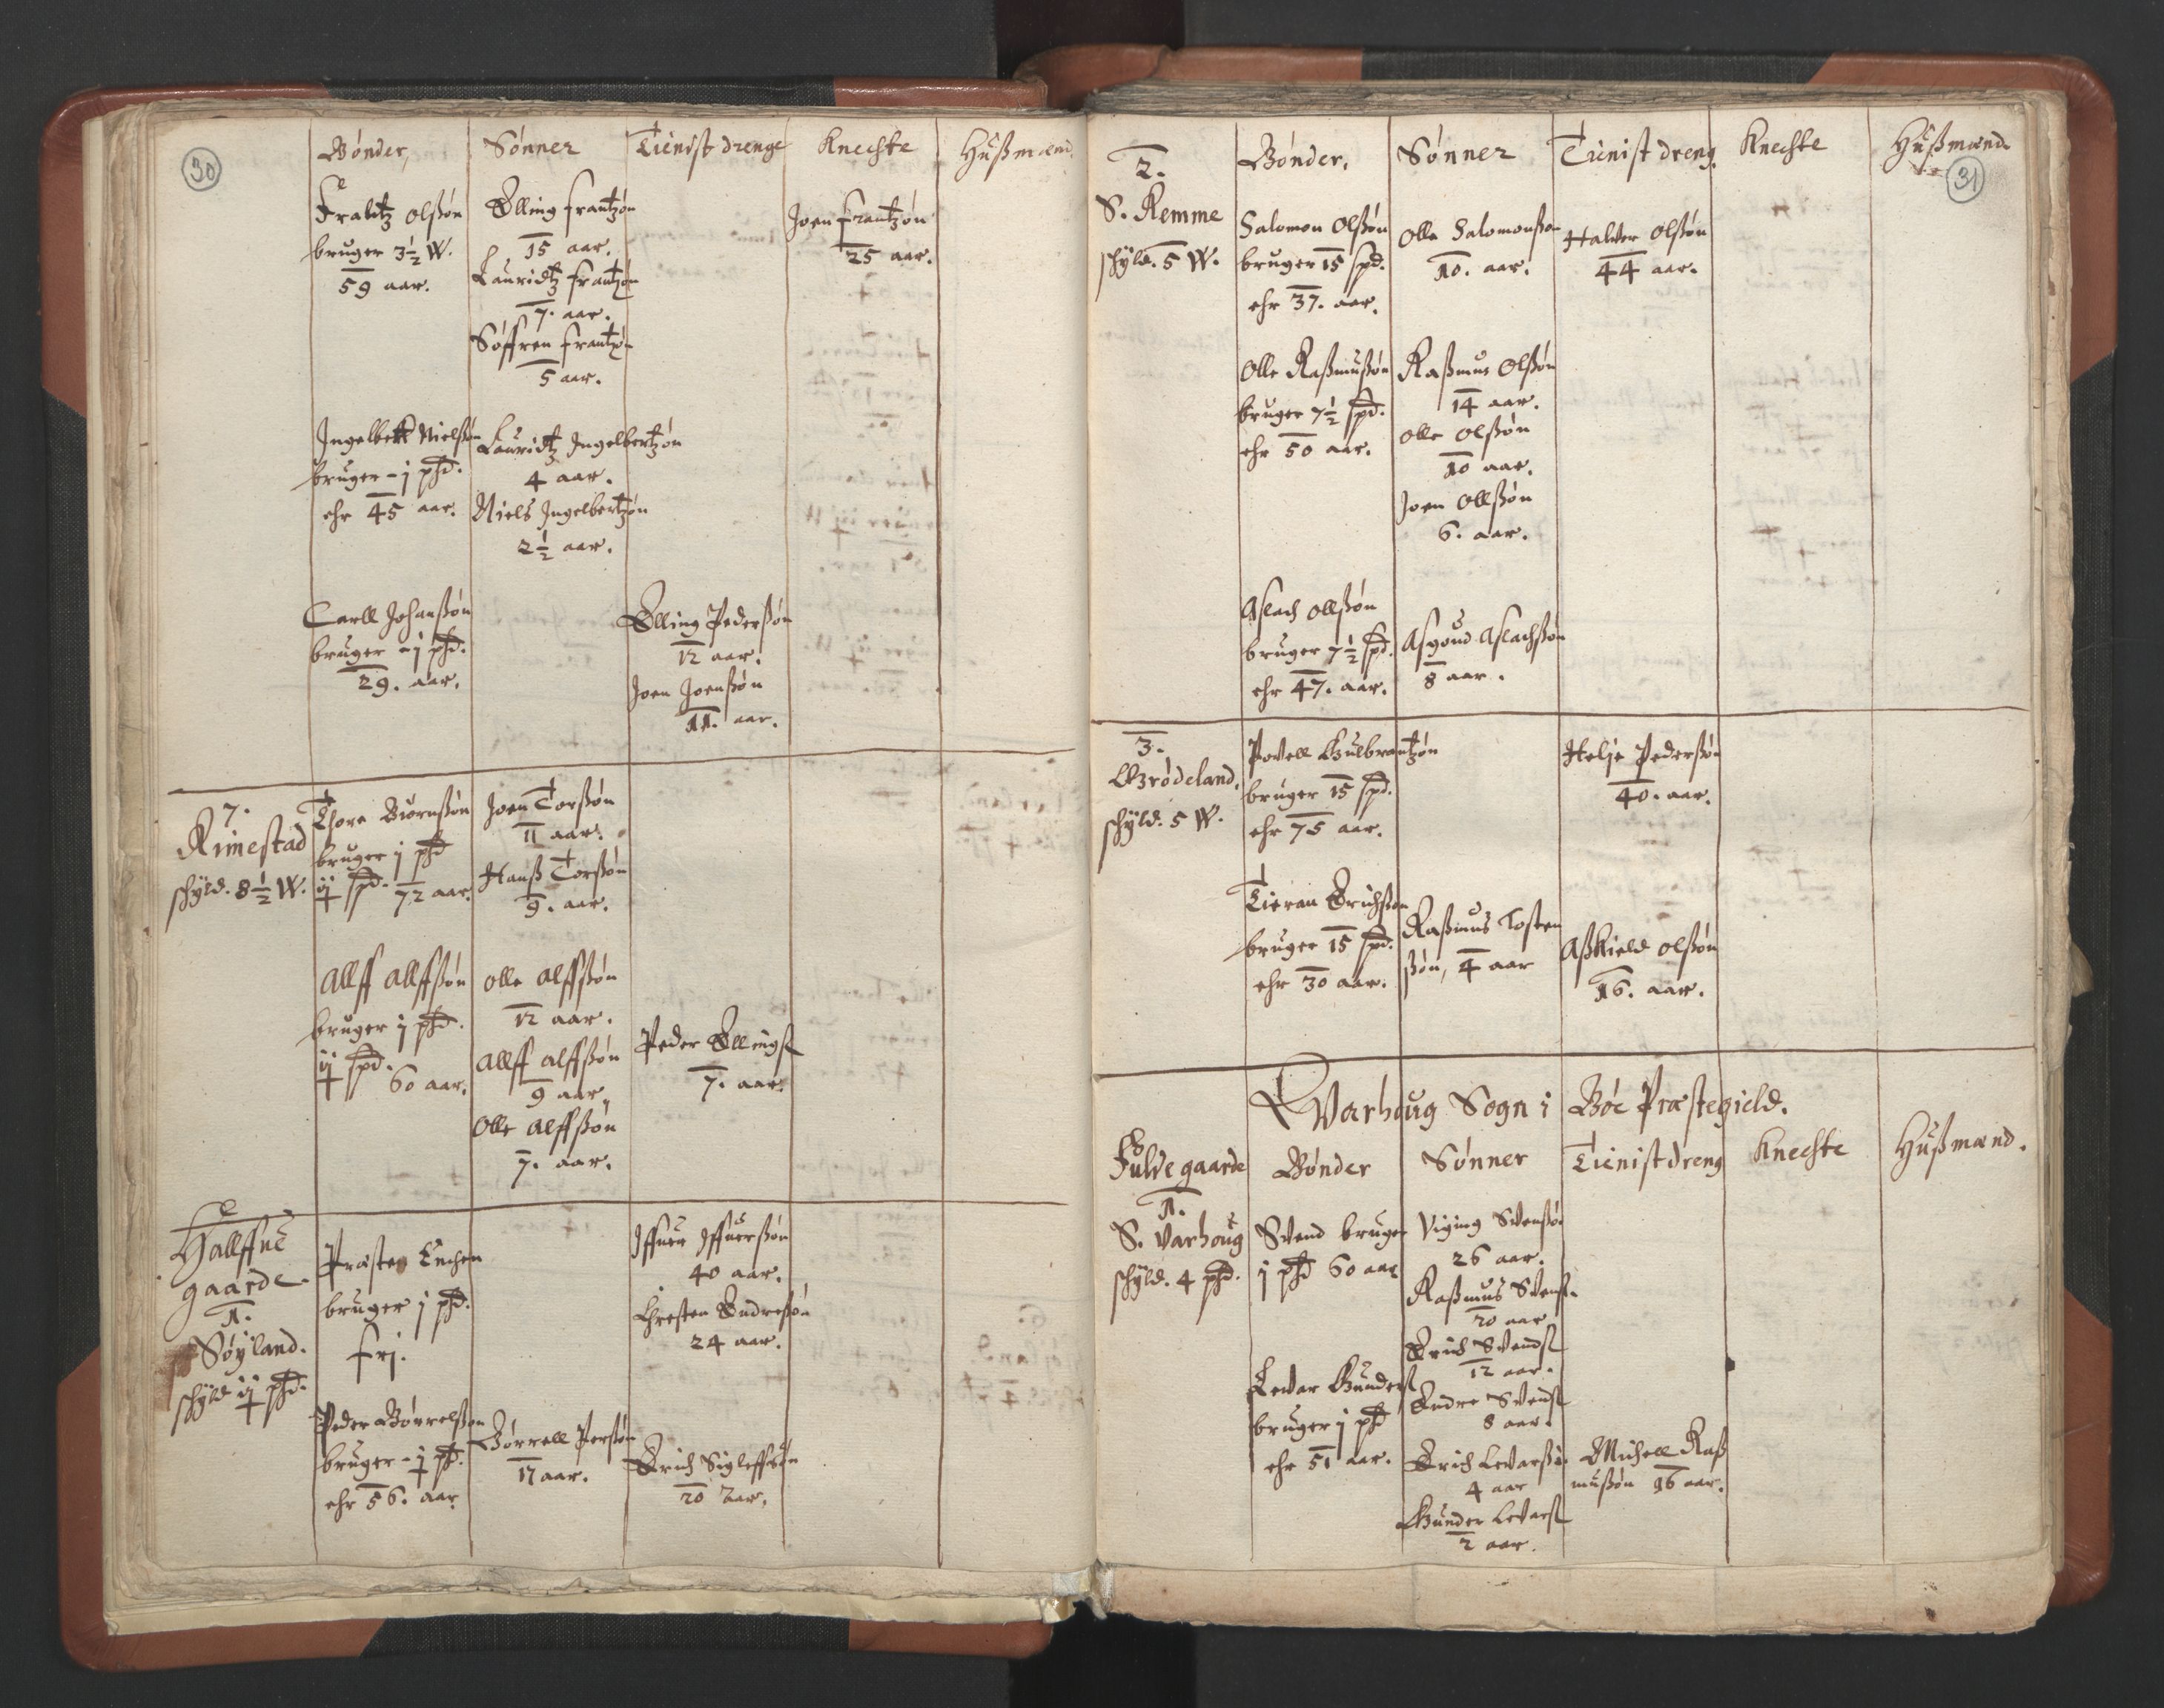 30
Bønder, Sønner Tienist drenge Knechte Hußmænd.
Frantz Olßøn
bruger 3½ W.
59 aar.
Elling Frantzøn
15 aar.
Lauridtz Frantzøn
7. aar.
Søffren Frantzøn
5 aar.
Joen Frantzøn
25 aar.
Ingelbett Nielßøn
bruger - j phd.
ehr 45 aar.
Lauridtz Ingelbertzøn
4 aar.
Niels Ingelbertzøn
2½ aar.
Carll Johanßøn
bruger - j phd.
29. aar.
Elling Pederßøn
12 aar.
Joen Joenßøn
11. aar.
7.
Rimestad
schyld. 8½ W.
Thore Biørnßøn
bruger j phd
ij spd. 72 aar.
Joen Torßøn
11 aar.
Hanß Torßøn
9. aar.
Allff Allffßøn
bruger j phd.
ij spd. 60 aar.
Olle Alffßøn
12 aar.
Allff Alffßøn
9 aar,
Olle Alffßøn
7. aar.
Peder Ellings
7. aar.
Hallffue
gaarde.
1.
Søyland.
schyld ij phd.
Præstens Enchen
bruger j phd.
frj.
Iffuer Iffuerßøn
40 aar.
Christen Endresøn
24 aar.
Peder Børrelßøn
bruger - j phd.
ehr 56. aar
Børrell Perßøn
17 aar.
Erich Sigleffsøn
20 aar.
31
Bønder, Sønner Tienist dreng. Knechte Hußmænd
2.
S. Kemme
schyld. 5 W.
Salomon Olßøn
bruger 15 spd.
ehr 37. aar.
Olle Salomonßøn
10. aar.
Halvor Olßøn
44 aar.
Olle Raßmußøn
bruger 7½ spd.
ehr 50 aar.
Raßmus Olßøn
14 aar.
Olle Olßøn
10 aar.
Joen Ollßøn
6. aar.
Aslach Ollßøn
bruger 7½ spd.
ehr 47. aar.
Asgoud Aslachßøn
8 aar.
3.
Grødeland.
schyld. 5 W.
Povell Gulbrantzøn
bruger 15 spd.
ehr 75 aar.
Helje Pederßøn
40. aar.
Tieran Erichßøn
bruger 15 spd.
ehr 30 aar.
Raßmus Tosten
ßøn, 4 aar
Aßkield Olßøn
16. aar.
Warhoug Sogn i Bøe Præstegield.
Fulde gaarde Bønder Sønner Tienist dreng Knechte Hußmænd.
1.
S. Varhoug
schyld. 4 phd.
Svend bruger
j phd 60 aar
Viging Svensøn
26 aar.
Raßmus Svens.
20 aar
Erich Svends
12 aar.
Endre Svens
8 aar.
Levar Gunders
bruger j phd
ehr 51 aar.
Erich Levarßøn.
4 aar
Gunder Levars
2 aar.
Michell Raß
mußøn 16 aar.